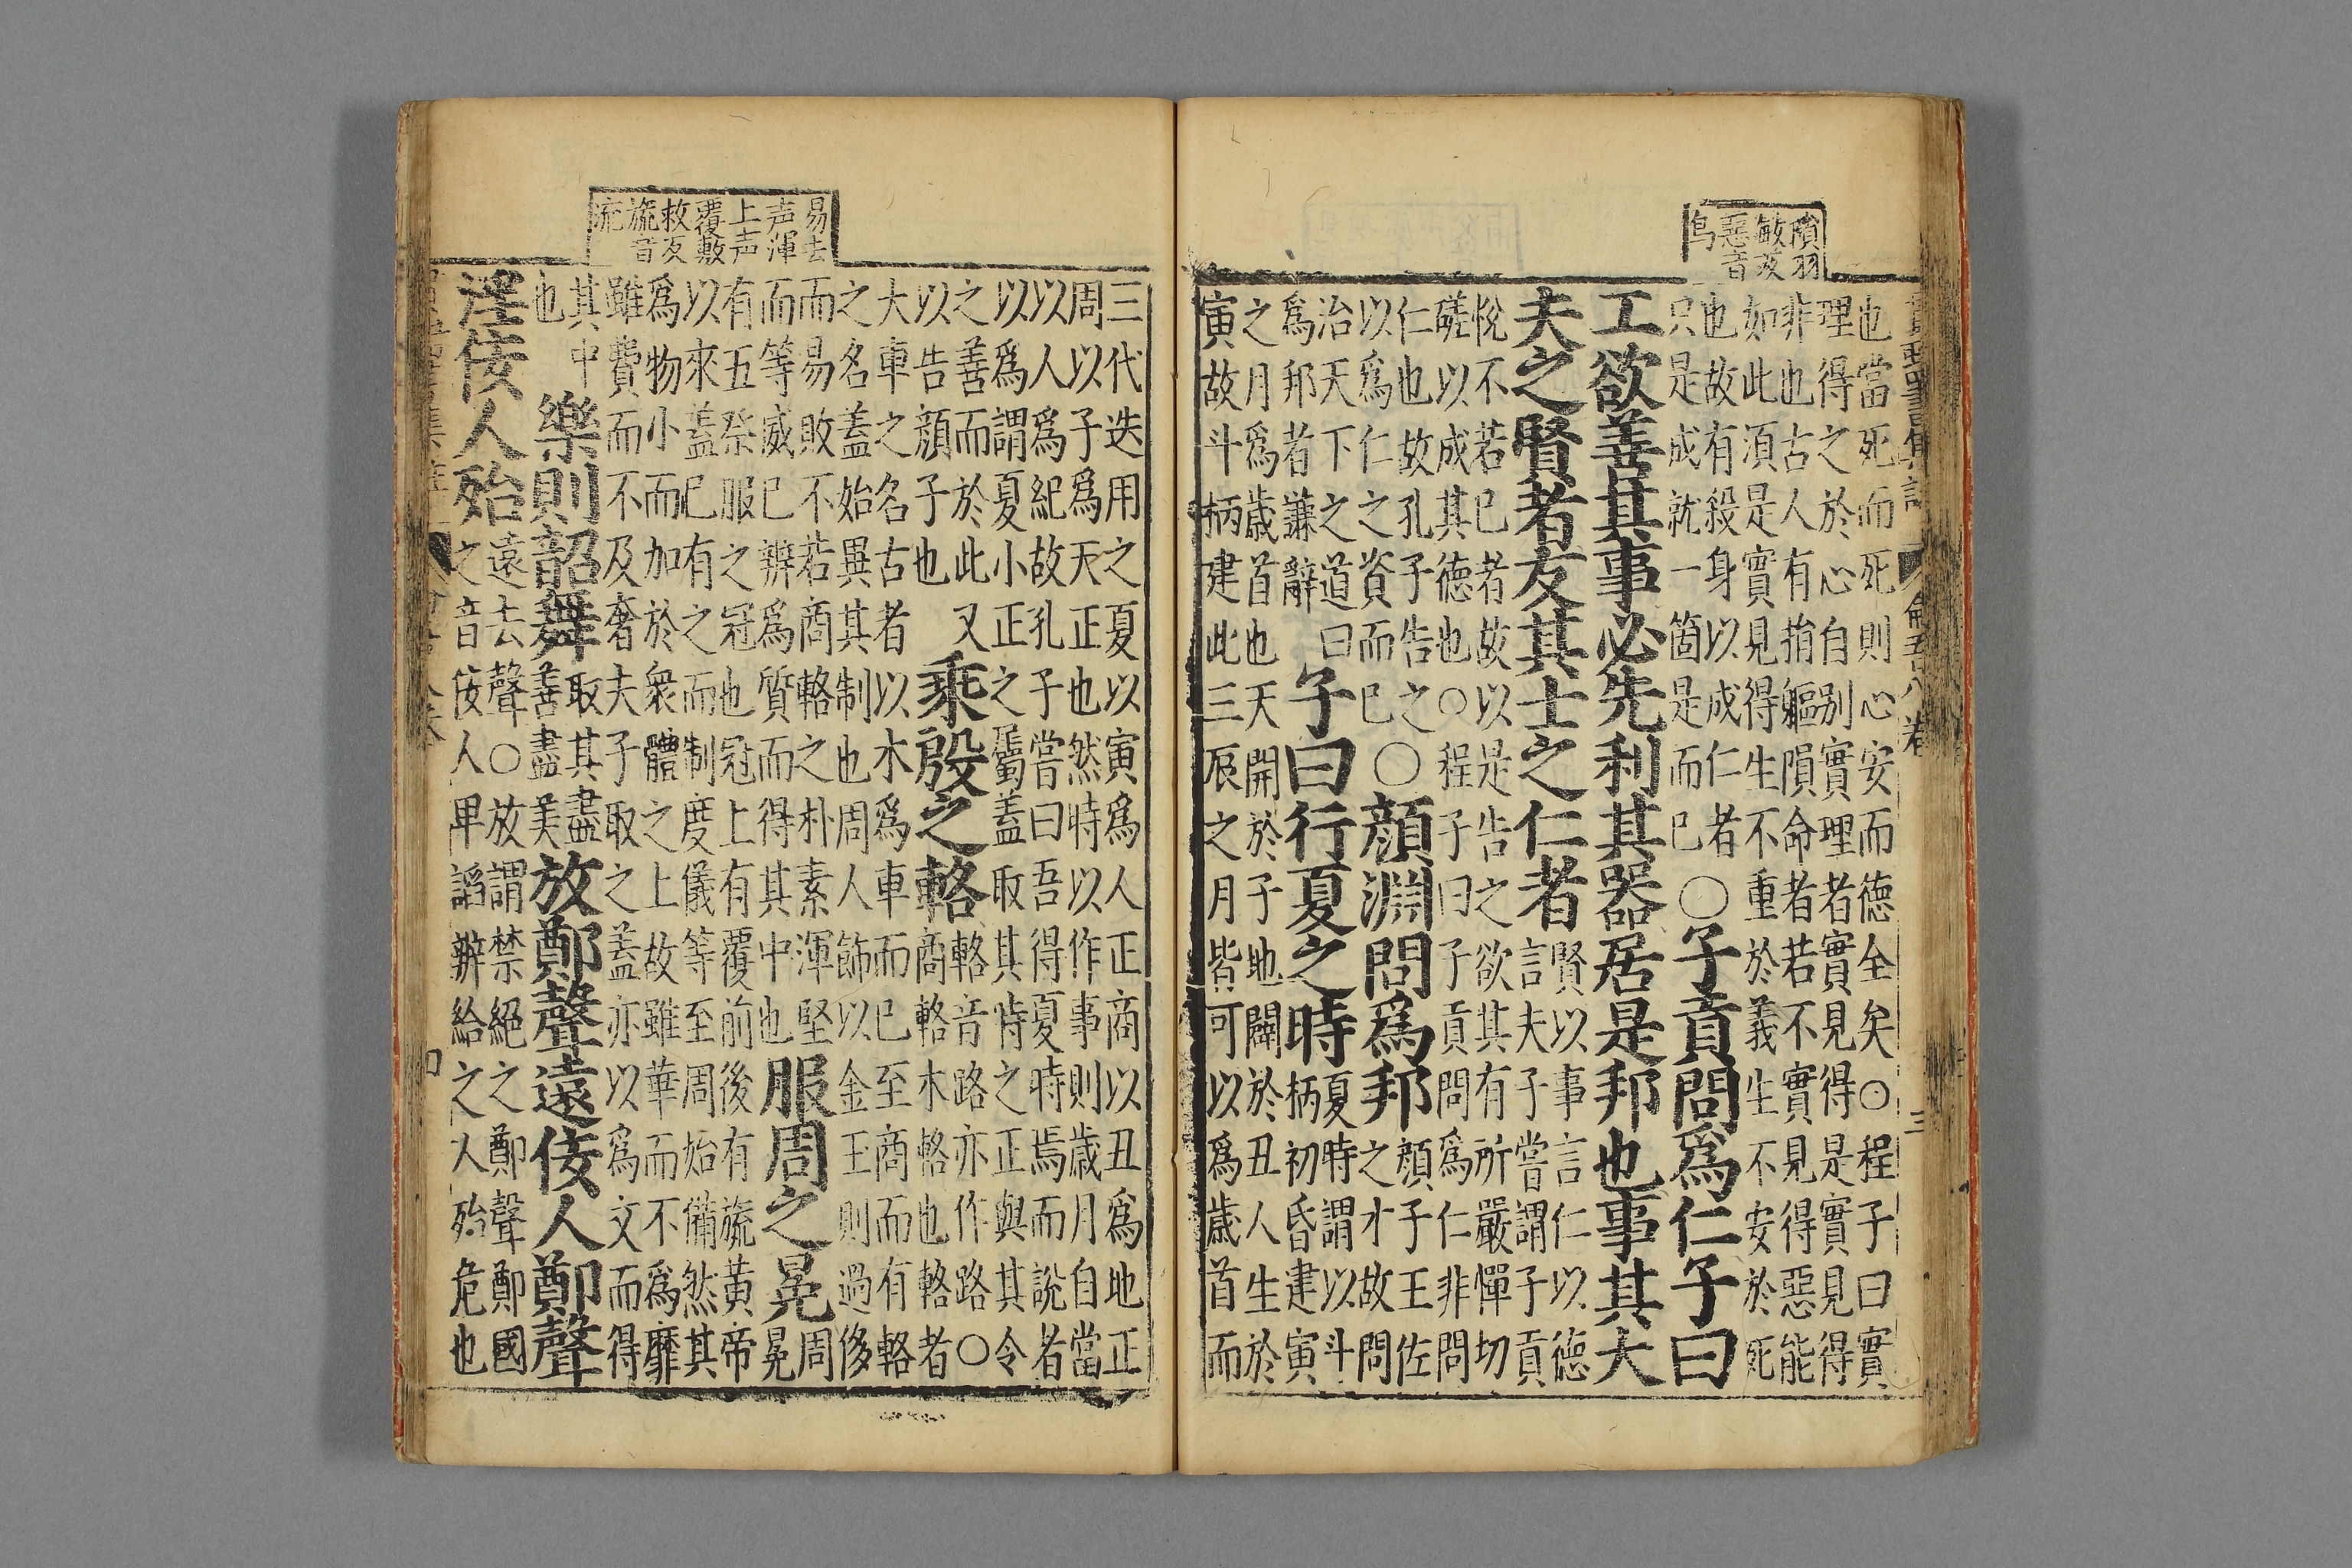 殞羽
敏友
惡音
烏
也當死而死則心安而德全矣○程子曰實
理得之於心自別實理者實見得是實見得
非也古人有捐軀隕命者若不實見得惡能
如此須是實見得生不重於義生不安於死
也故有殺身以成仁者
只是成就一箇是而已
○子貢問爲仁子曰
工欲善其事必先利其器居是邦也事其大
夫之賢者友其士之仁者
賢以事言仁以德
言夫子嘗謂子貢
悅不若己者故以是告之欲其有所嚴憚切
磋以成其德也○程子曰子貢問爲仁非問
仁也故孔子告之
以爲仁之資而已
○顏淵問爲邦
顏子王佐
之才故問
治天下之道曰
爲邦者謙辭
子曰行夏之時
夏時謂以斗
柄初昏建寅
之月爲歲首也天開於子地闢於丑人生於
寅故斗柄建此三辰之月皆可以爲歲首而
三代迭用之夏以寅爲人正商以丑爲地正
周以子爲天正也然時以作事則歲月自當
以人爲紀故孔子嘗曰吾得夏時焉而說者
以爲謂夏小正之屬蓋取其時之正與其令
之善而於此又
以告顏子也
乘殷之輅
輅音路亦作路○
商輅木輅也輅者
大車之名古者以木爲車而已至商而有輅
之名蓋始異其制也周人飾以金玉則過侈
而易敗不若商輅之朴素渾堅
而等威已辨爲質而得其中也
服周之冕
周
冕
有五祭服之冠也冠上有覆前後有旒黃帝
以來蓋已有之而制度儀等至周始備然其
爲物小而加於衆體之上故雖華而不爲靡
雖費而不及奢夫子取之蓋亦以爲文而得
其中
也
樂則韶舞
取其盡
善盡美
放鄭聲遠佞人鄭聲
淫佞人殆
遠去聲○放謂禁絕之鄭聲鄭國
之音佞人卑諂辨給之人殆危也
易去
声渾
上声
覆敷
救反
旒音
流